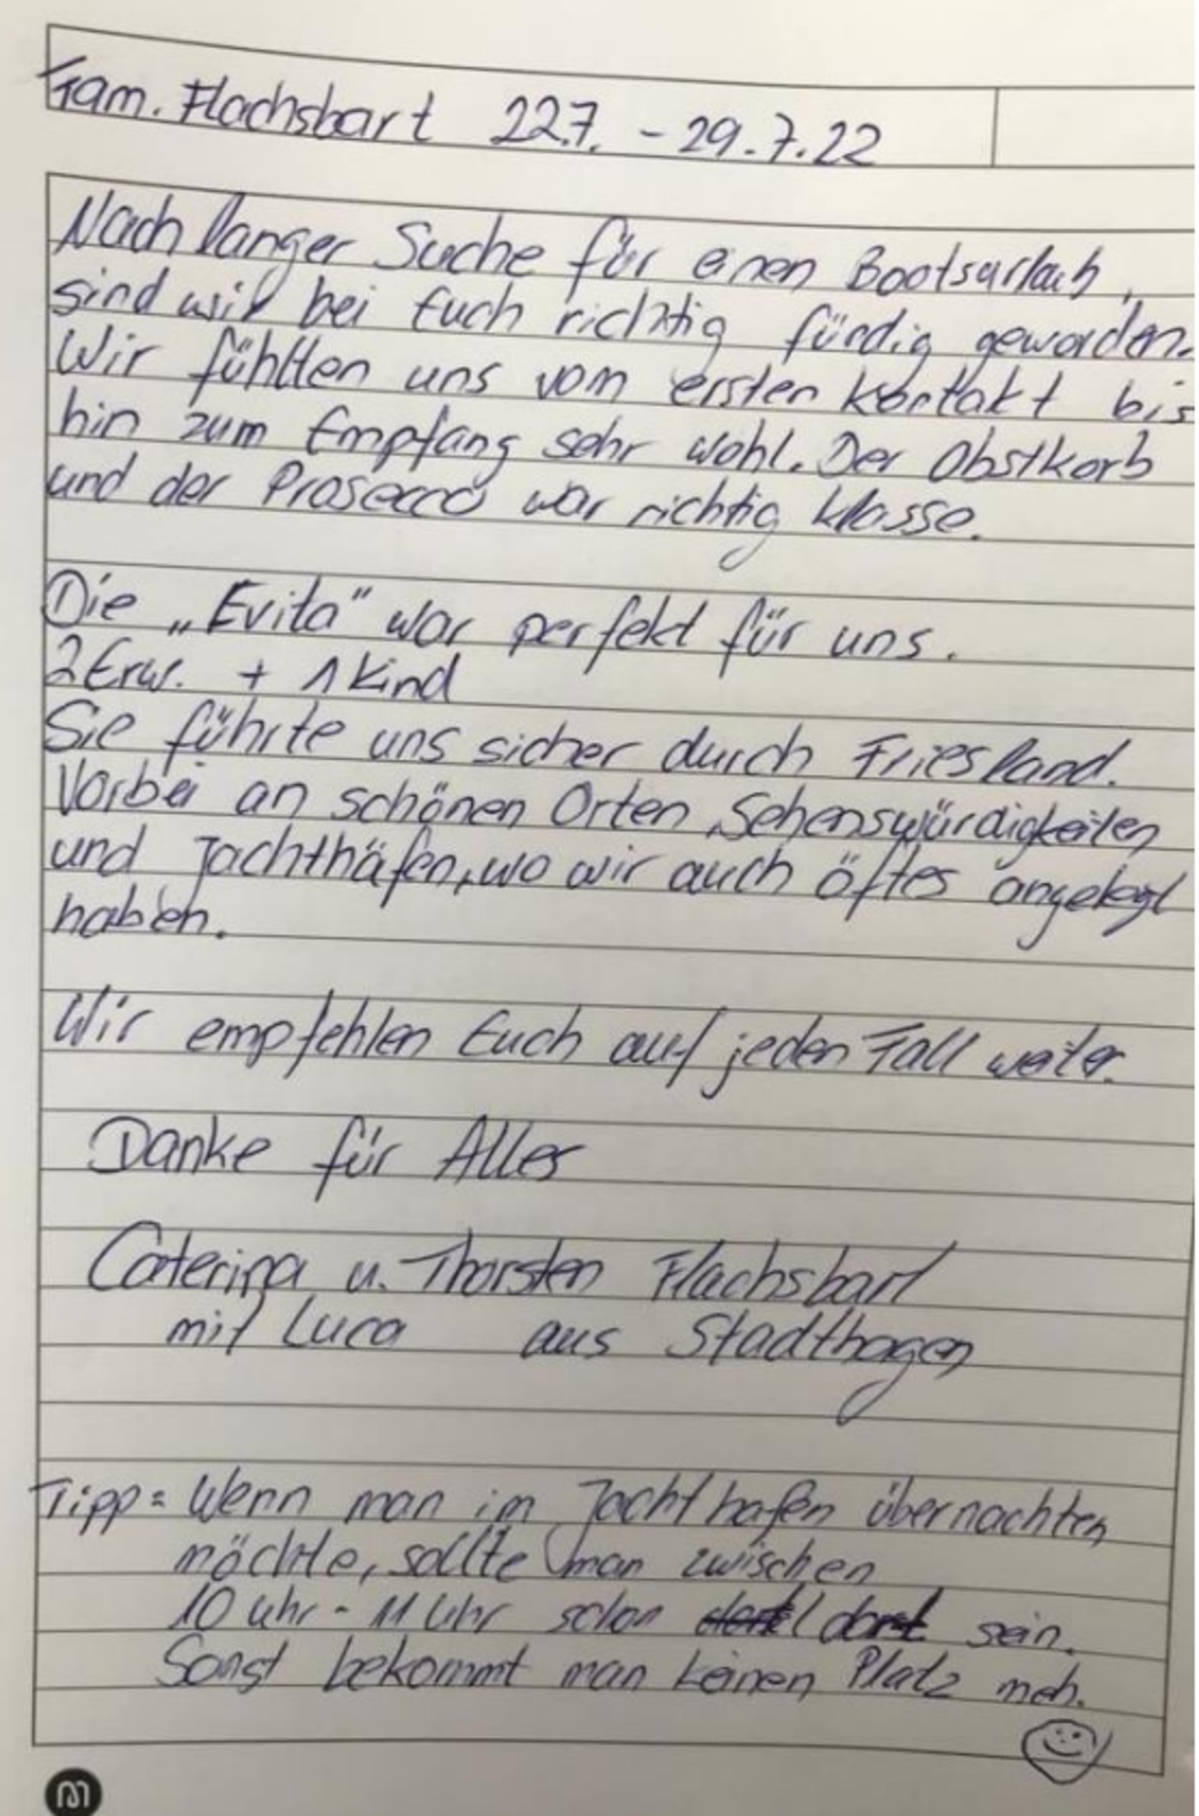 Fam. Flachsbart 22.7. - 29.7.22
Nach langer Suche für einen Bootsurlaub,
sind wir bei Euch richtig fündig geworden.
Wir fühlten uns vom ersten Kontakt bis
hin zum Empfang sehr wohl. Der Obstkorb
und der Prosecco war richtig klasse.
Die „Evita" war perfekt für uns.
2 Erw. + 1 Kind
Sie führte uns sicher durch Friesland.
Vorbei an schönen Orten, Sehenswürdigkeiten
und Jachthäfen, wo wir auch öftes angelegt
haben.
Wir empfehlen Euch auf jeden Fall weiter.
Danke für Alles
Caterina u. Thorsten Flachsbart
mit Luca aus Stadthagen
Tipp: Wenn man im Jachthafen übernachten
möchte, sollte man zwischen
10 Uhr - 11 Uhr schon dort sein.
Sonst bekommt man keinen Platz meh.